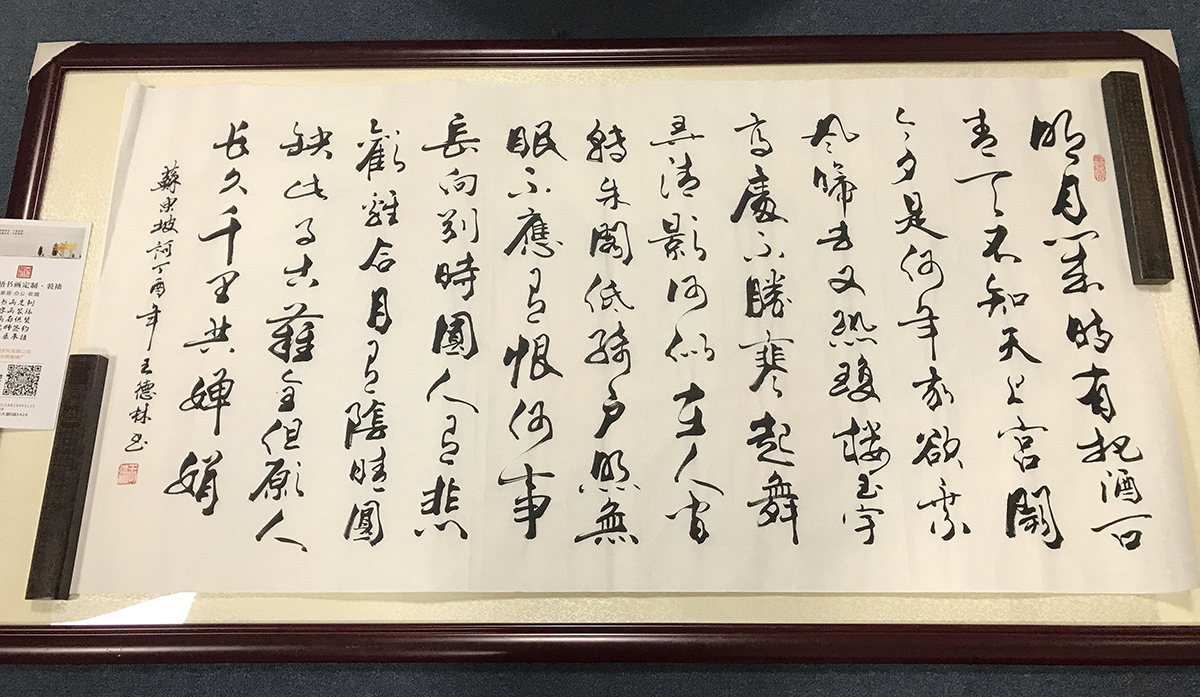 明月幾時有把酒问
青天不知天上宫闕
今夕是何年我欲乘
风歸去又恐瓊樓玉宇
高處不勝寒起舞
弄清影何似在人间
轉朱閣低綺户照無
眠不應有恨何事
長向别時圓人有悲
歡離合月有陰晴圓
缺此事古難全但願人
长久千里共嬋娟
蘇東坡詞丁酉年王德林书
书画定制·装裱
办公·收藏